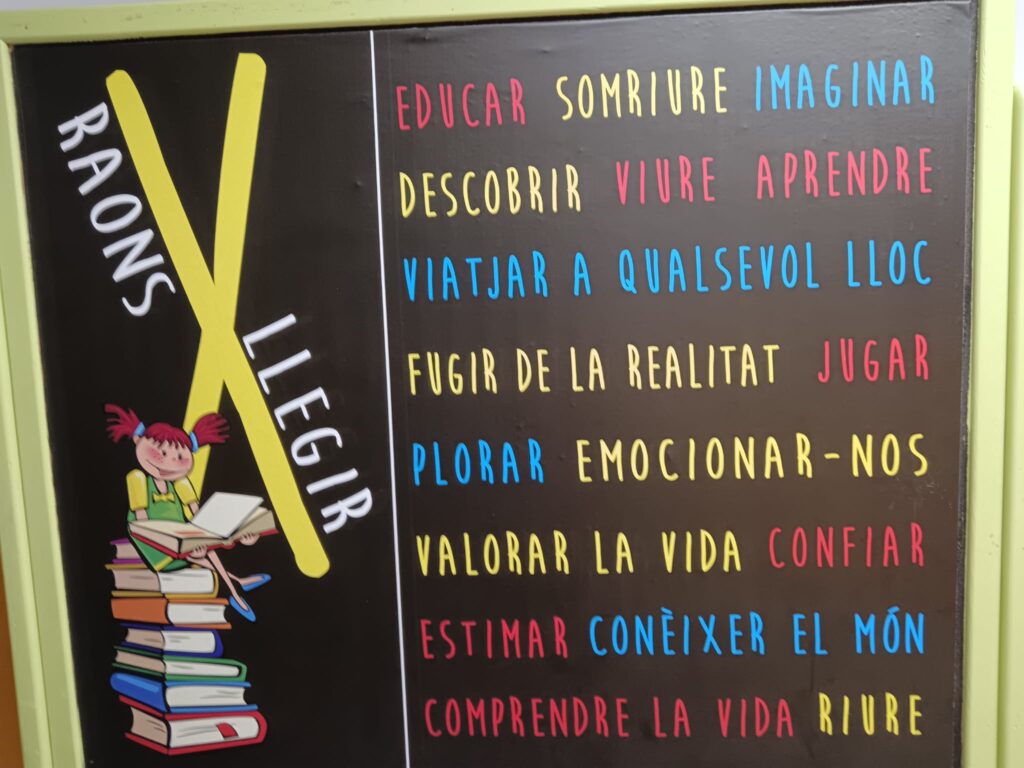 RAONS
X
LLEGIR
EDUCAR SOMRIURE IMAGINAR
DESCOBRIR VIURE APRENDRE
VIATJAR A QUALSEVOL LLOC
FUGIR DE LA REALITAT JUGAR
PLORAR EMOCIONAR-NOS
VALORAR LA VIDA CONFIAR
ESTIMAR CONÈIXER EL MÓN
COMPRENDRE LA VIDA RIURE